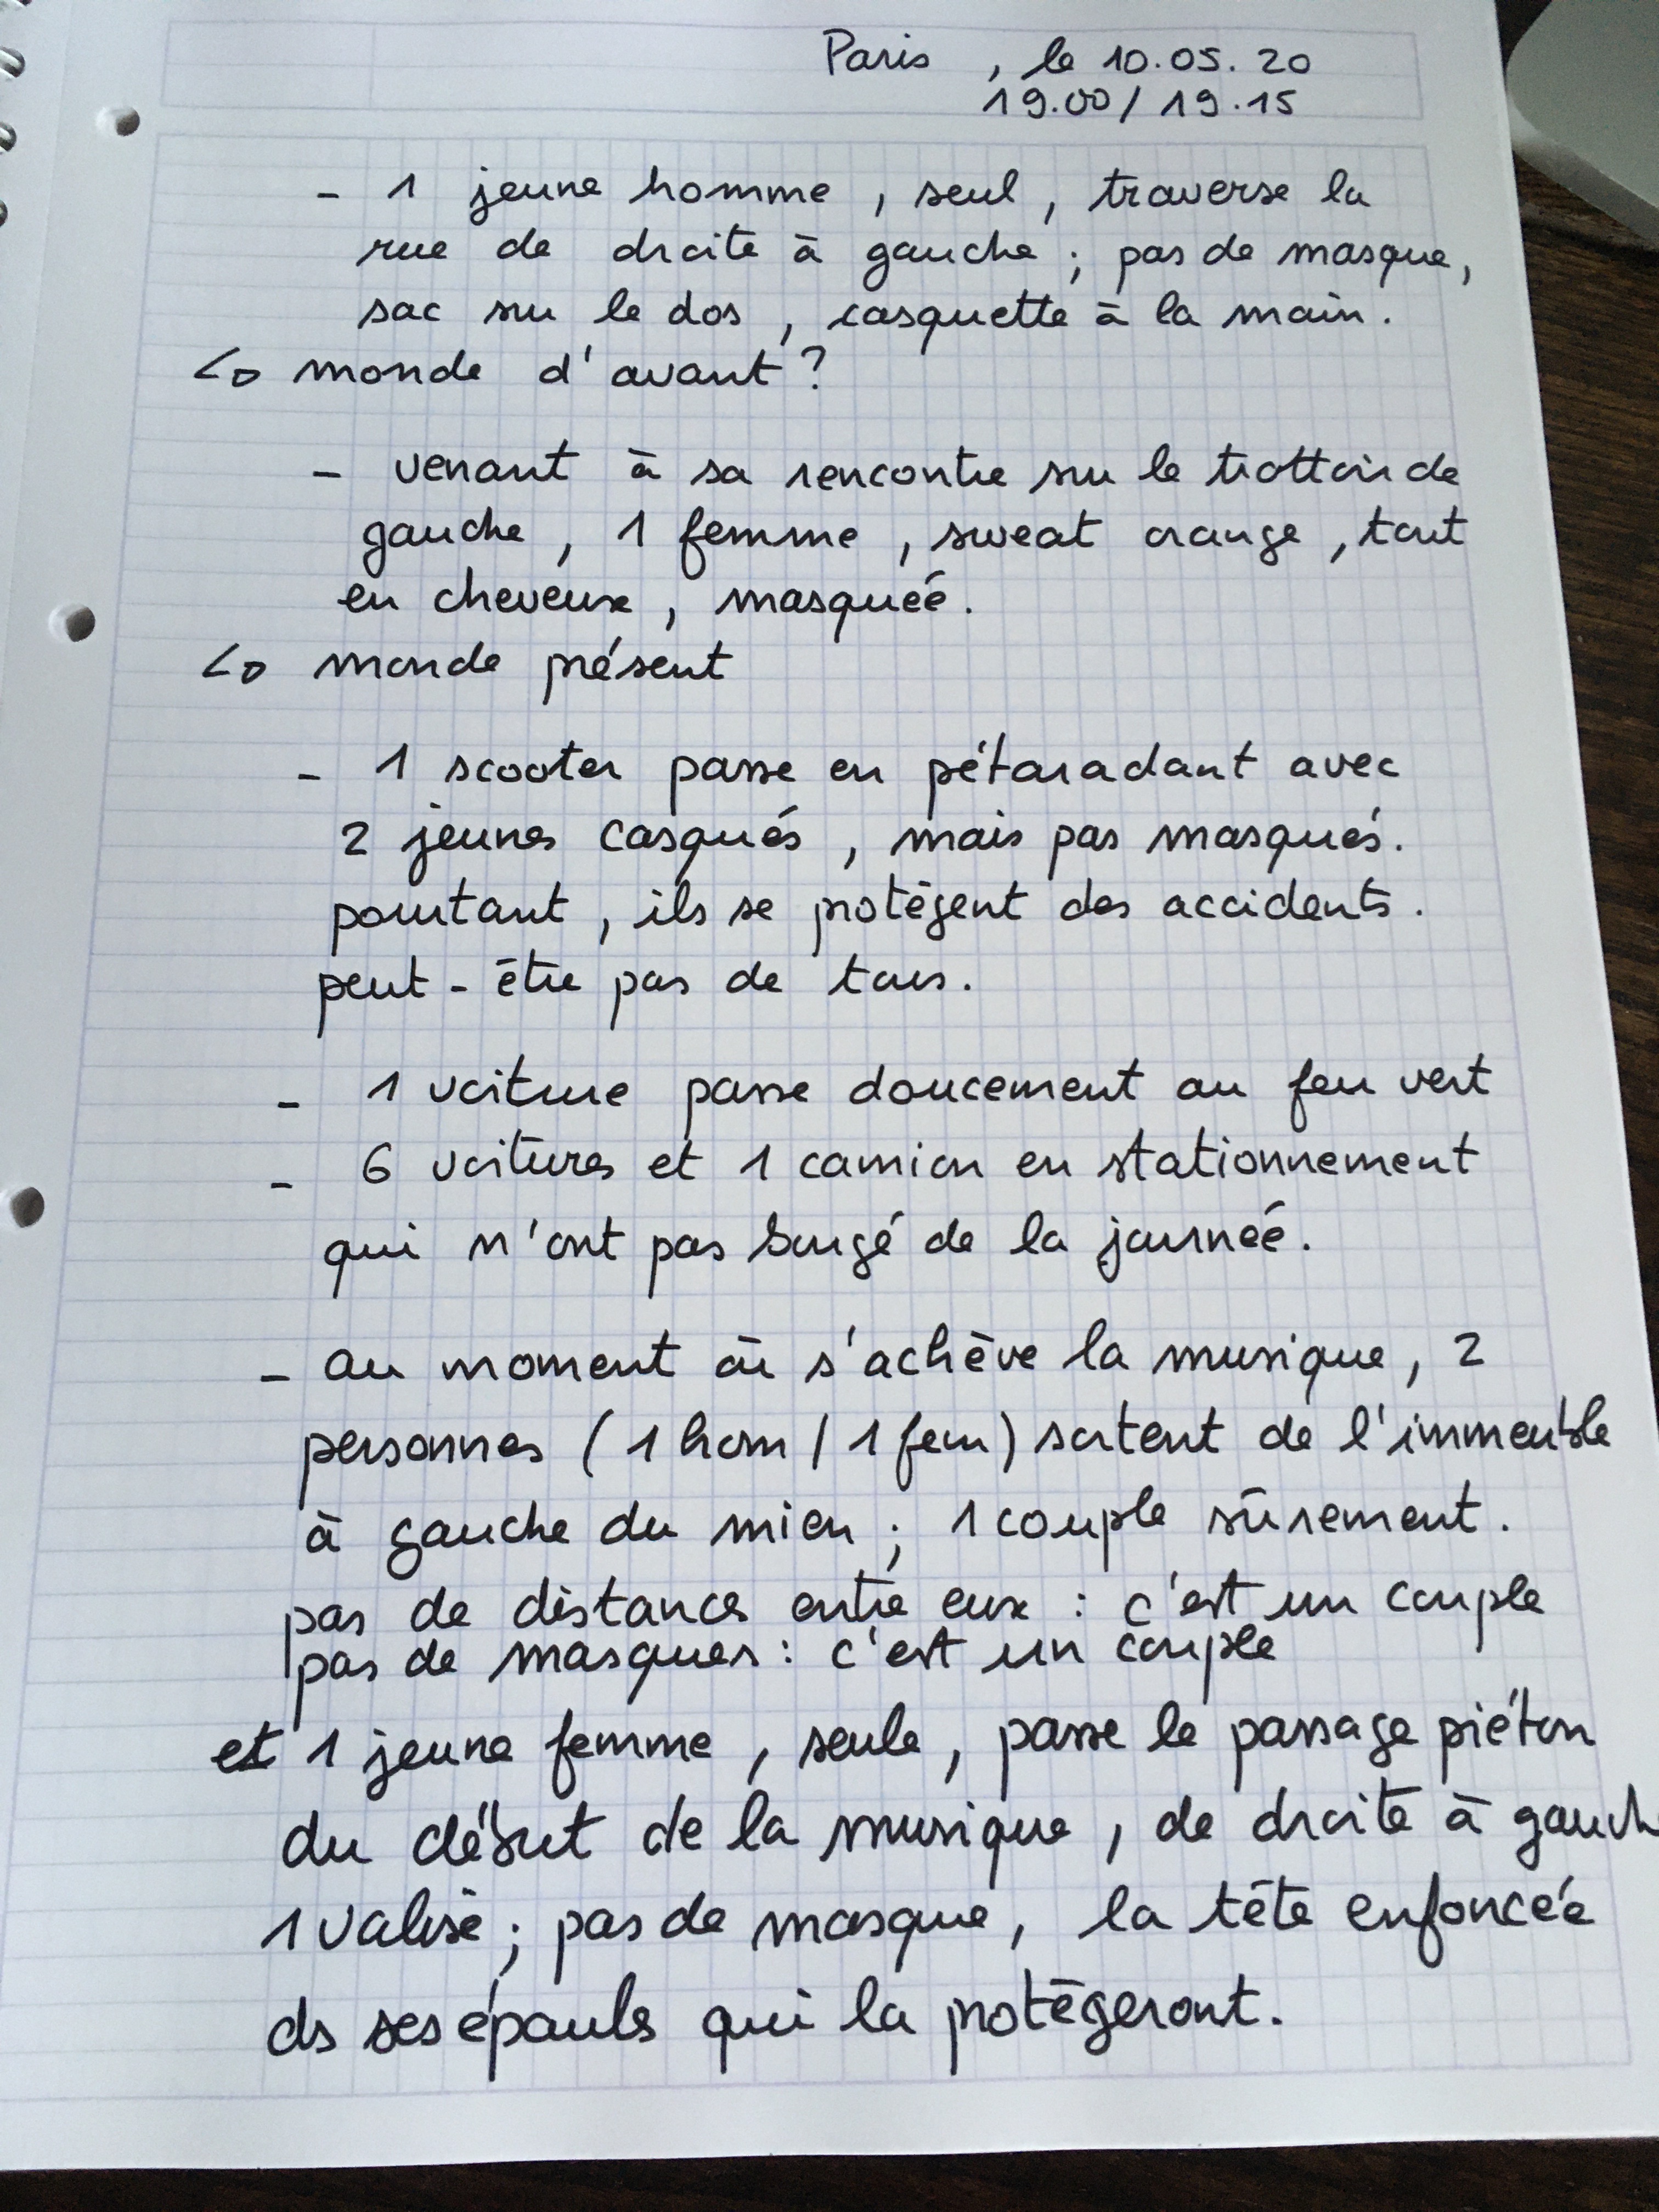 Paris , le 10.05.20
19.00 / 19.15
- 1 jeune homme, seul, traverse la
rue de droite à gauche ; pas de masque,
sac sur le dos, casquette à la main.
↳ monde d'avant ?
- venant à sa rencontre sur le trottoir de
gauche, 1 femme, sweat orange, tout
en cheveux, masquée.
↳ monde présent
- 1 scooter passe en pétaradant avec
2 jeunes casqués, mais pas masqués.
pourtant, ils se protègent des accidents.
peut-être pas de tous.
- 1 voiture passe doucement au feu vert
- 6 voitures et 1 camion en stationnement
qui n'ont pas bougé de la journée.
- au moment où s'achève la musique, 2
personnes (1 hom / 1 fem) sortent de l'immeuble
à gauche du mien ; 1 couple sûrement.
pas de distance entre eux : c'est un couple
pas de masques : c'est un couple
et 1 jeune femme, seule, passe le passage piéton
du début de la musique, de droite à gauch
1 valise ; pas de masque, la tête enfoncée
ds ses épaules qui la protègeront.